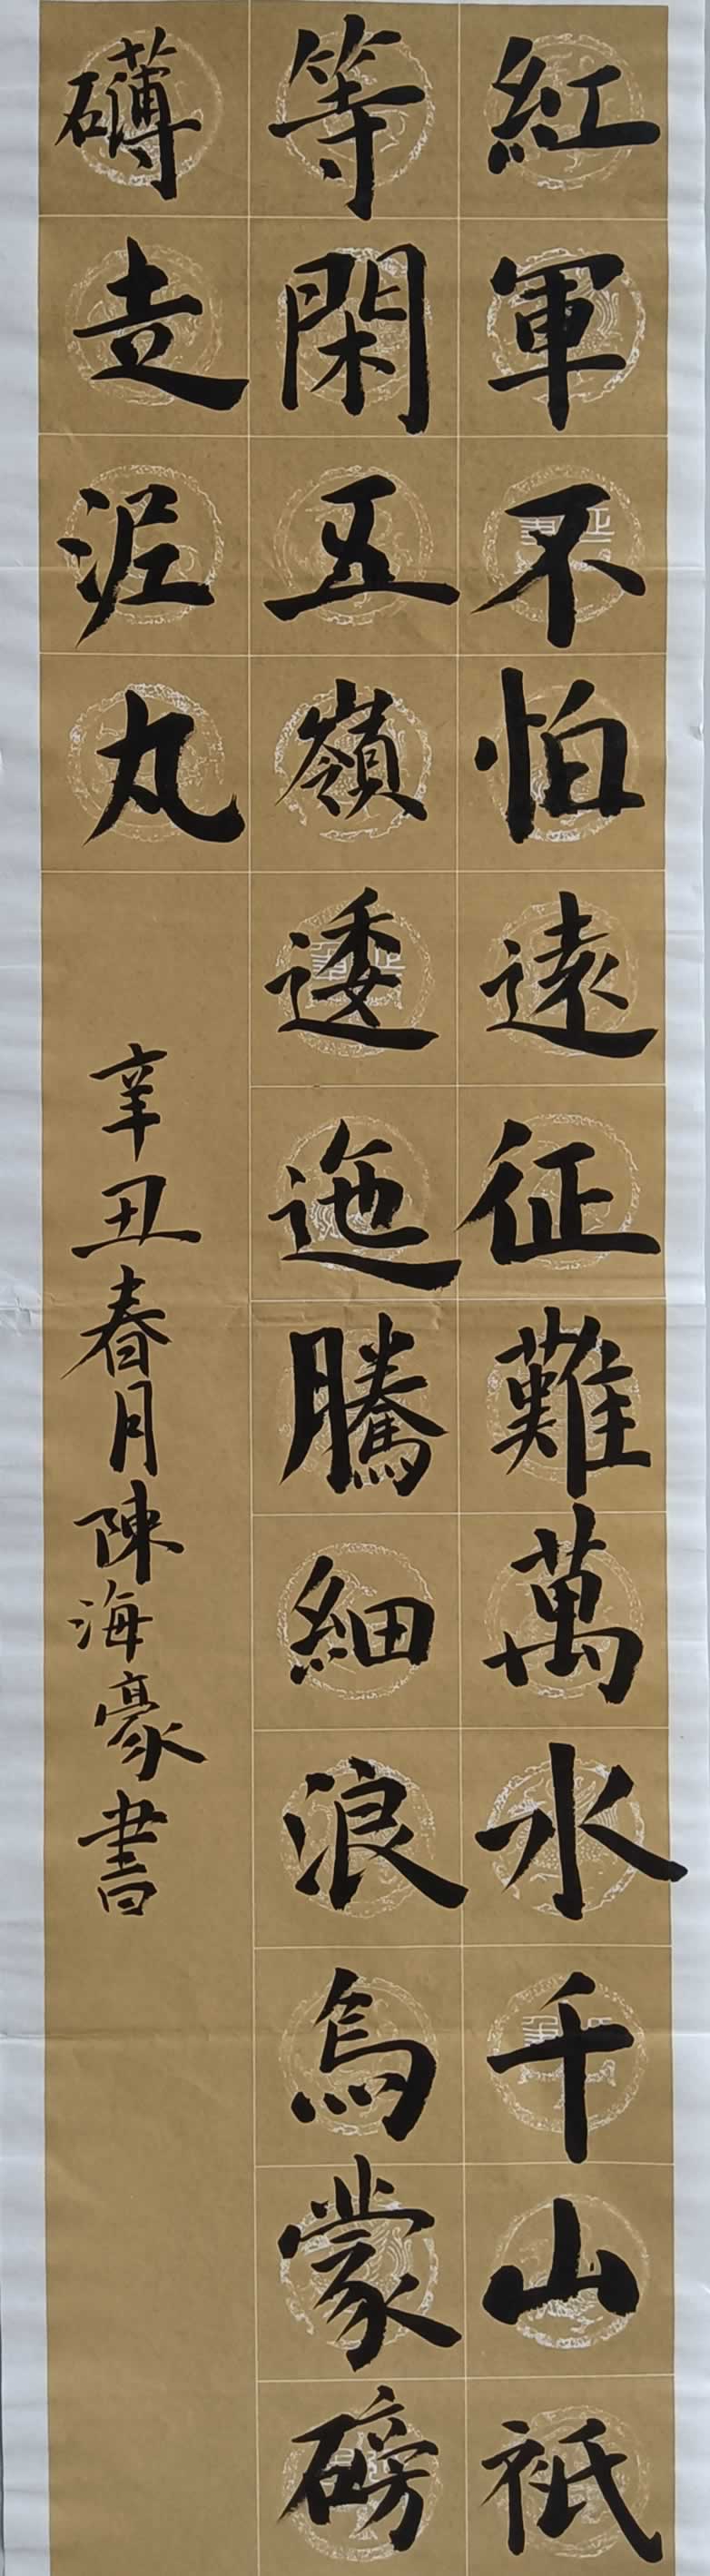 紅軍不怕遠征難萬水千山祇
等閑五嶺逶迤騰細浪烏蒙磅
礴走泥丸
辛丑春月陳海豪書